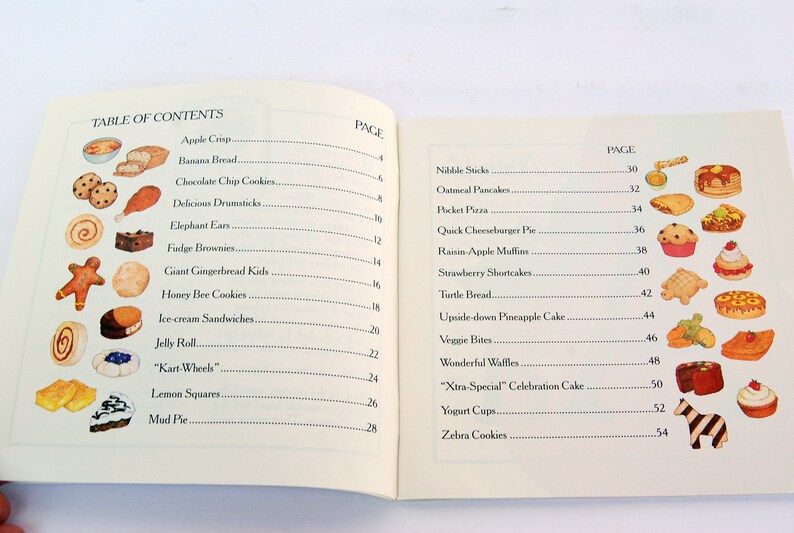 TABLE OF CONTENTS
PAGE
Apple Crisp 4
Banana Bread 6
Chocolate Chip Cookies 8
Delicious Drumsticks 10
Elephant Ears 12
Fudge Brownies 14
Giant Gingerbread Kids 16
Honey Bee Cookies 18
Ice-cream Sandwiches 20
Jelly Roll 22
“Kart-Wheels” 24
Lemon Squares 26
Mud Pie 28
PAGE
Nibble Sticks 30
Oatmeal Pancakes 32
Pocket Pizza 34
Quick Cheeseburger Pie 36
Raisin-Apple Muffins 38
Strawberry Shortcakes 40
Turtle Bread 42
Upside-down Pineapple Cake 44
Veggie Bites 46
Wonderful Waffles 48
“Xtra-Special” Celebration Cake 50
Yogurt Cups 52
Zebra Cookies 54